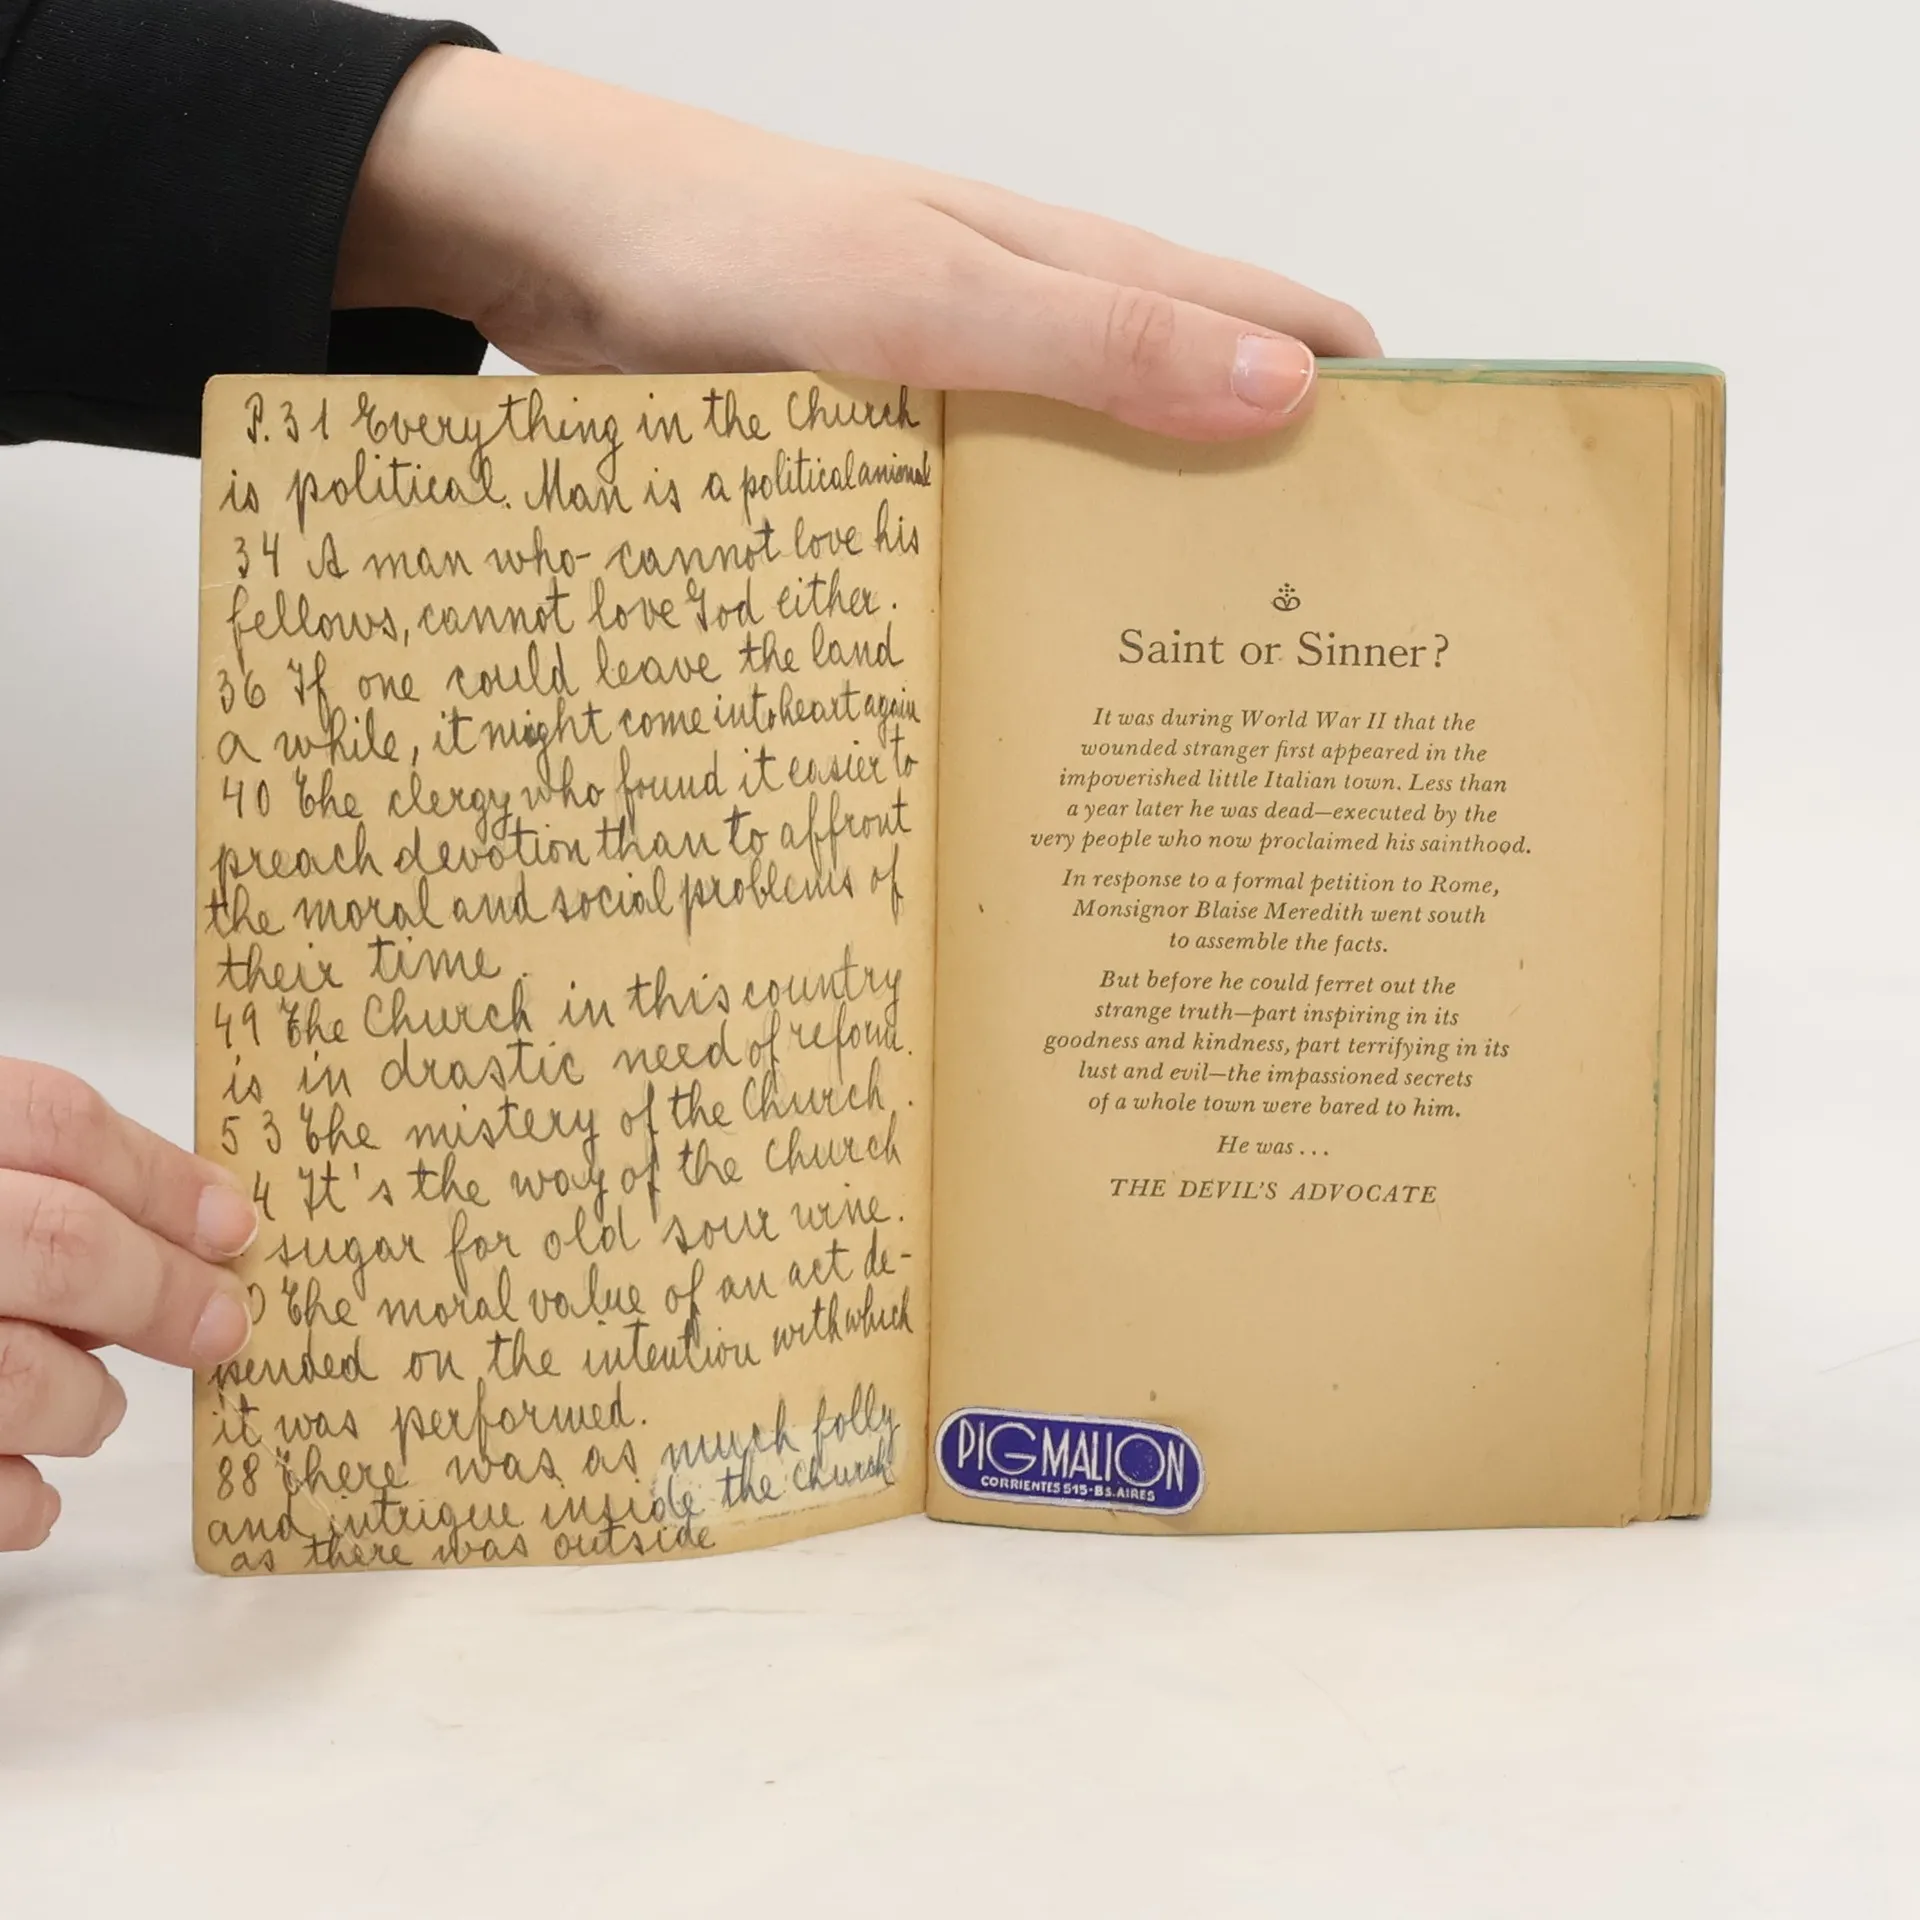 P. 31 Everything in the Church
is political. Man is a political animal
34 A man who cannot love his
fellows, cannot love God either.
36 If one could leave the land
a while, it might come into heart again
40 The clergy who found it easier to
preach devotion than to affront
the moral and social problems of
their time.
49 The Church in this country
is in drastic need of reform.
53 The mistery of the Church.
4 It's the way of the Church
sugar for old sour wine.
0 The moral value of an act de-
pended on the intention with which
it was performed.
88 There was as much folly
and intrigue inside the Church
as there was outside
Saint or Sinner?
It was during World War II that the
wounded stranger first appeared in the
impoverished little Italian town. Less than
a year later he was dead—executed by the
very people who now proclaimed his sainthood.
In response to a formal petition to Rome,
Monsignor Blaise Meredith went south
to assemble the facts.
But before he could ferret out the
strange truth—part inspiring in its
goodness and kindness, part terrifying in its
lust and evil—the impassioned secrets
of a whole town were bared to him.
He was . . .
THE DEVIL'S ADVOCATE
PIGMALION
CORRIENTES 515-BS.AIRES